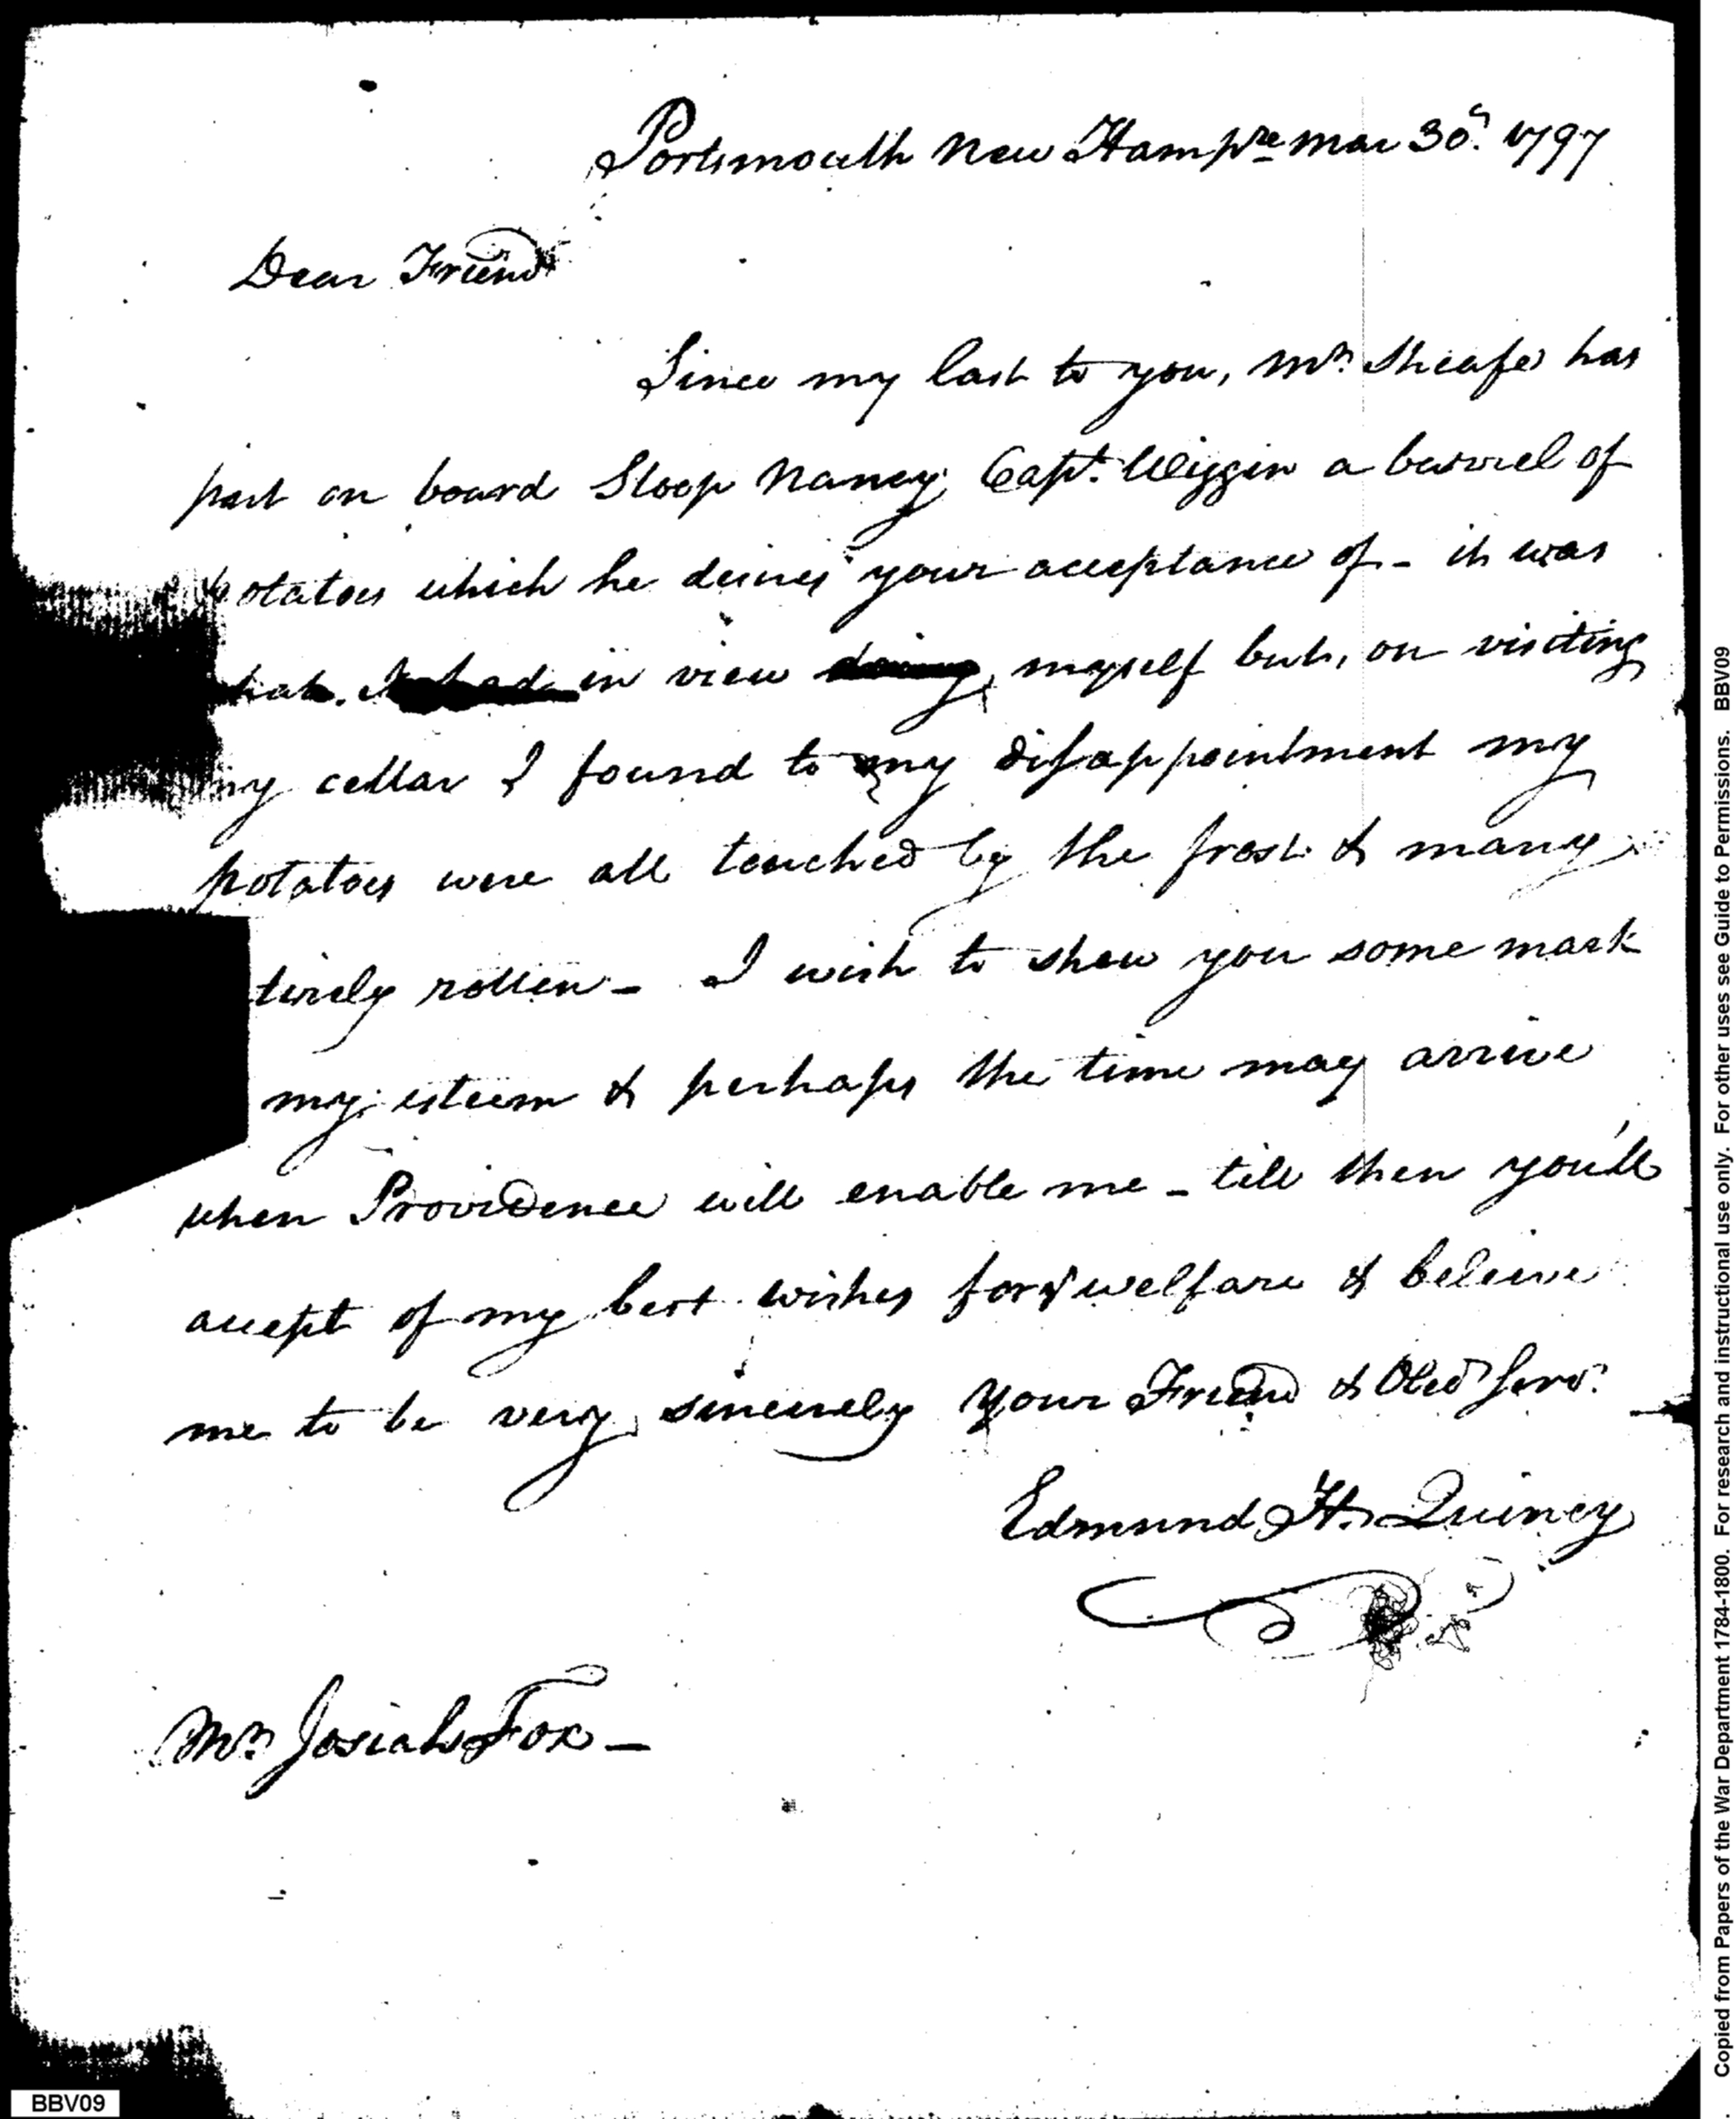 Portsmouth New Hampre Mar 30th 1797
Dear Friend
Since my last to you, Mr. Sheafe has
put on board Sloop Nancy Capt. Wiggin a barrel of
potatoes which he desires your acceptance of - it was
what I had in view myself but, on visiting
my cellar I found to my disappointment my
potatoes were all touched by the frost & many
tirely rotten - I wish to shew you some mark
my esteem & perhaps the time may arrive
when Providence will enable me - till then you'll
accept of my best wishes for yr welfare & believe
me to be very sincerely your Friend & Obed Servt.
Edmund H. Quincy
Mr. Josiah Fox -
BBV09
Copied from Papers of the War Department 1784-1800. For research and instructional use only. For other uses see Guide to Permissions. BBV09